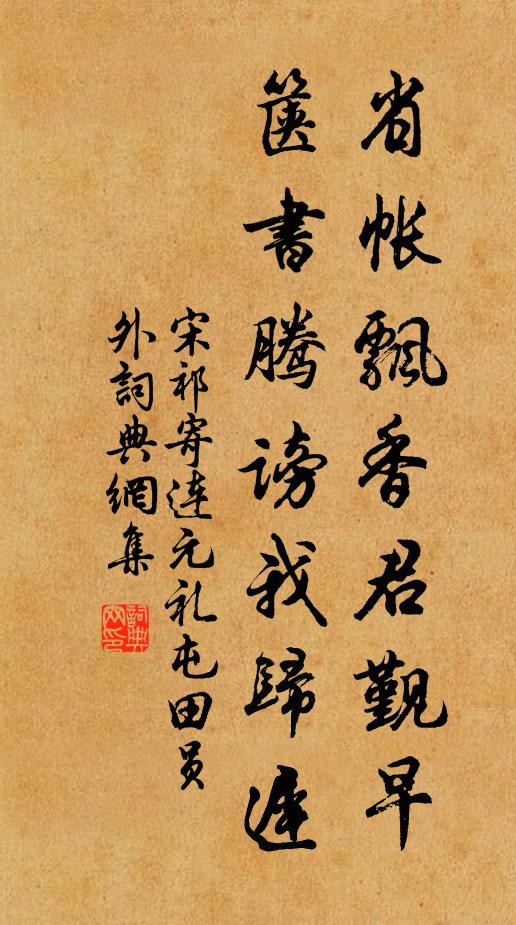 省帐飘香君觐早
箧书腾谤我归迟
宋祁寄连元礼屯田员
外词典网集
詞典
网印